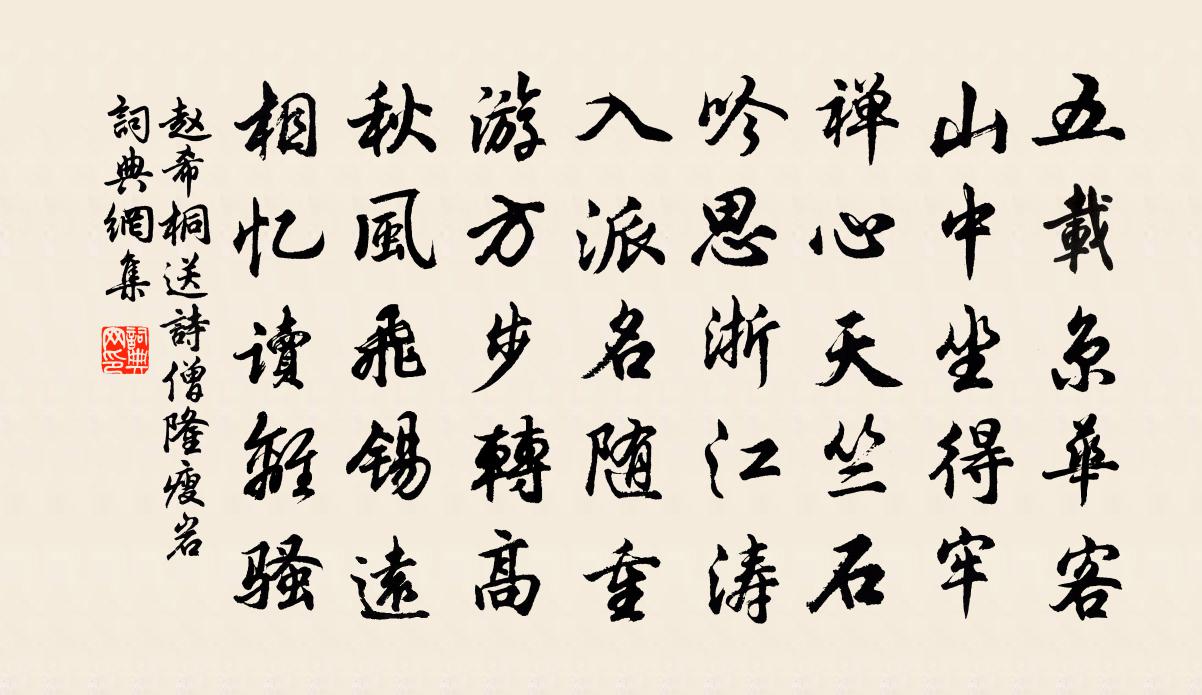 五載京華客
山中坐得牢
禅心天竺石
吟思浙江涛
入派名随重
游方步轉高
秋風飛锡遠
相忆讀離騷
赵希桐送詩僧隆瘦岩
詞典網集
詞典网印